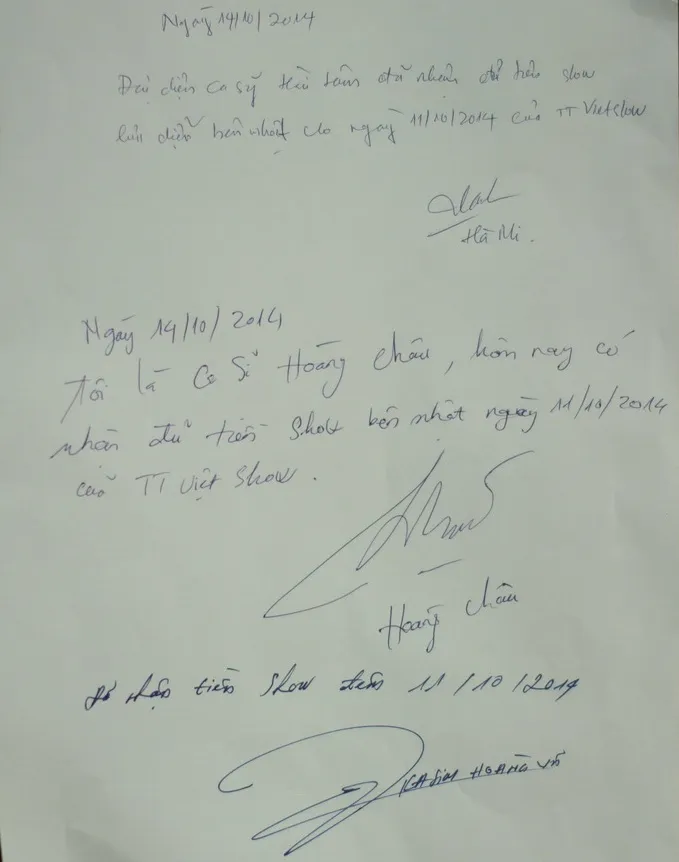 Ngày 14/10/2014
Đại diện ca sỹ đã nhận đủ tiền slow
diễn bên nhật ngày 11/10/2014 của TT Việt slow
Hà Mi.
Ngày 14/10/2014
Tôi là Ca Sĩ Hoàng Châu, hôm nay có
nhận đủ tiền Show bên nhật ngày 11/10/2014
của TT Việt Show.
Hoàng Châu
Đã nhận tiền Show đêm 11/10/2014
HOÀNG VŨ